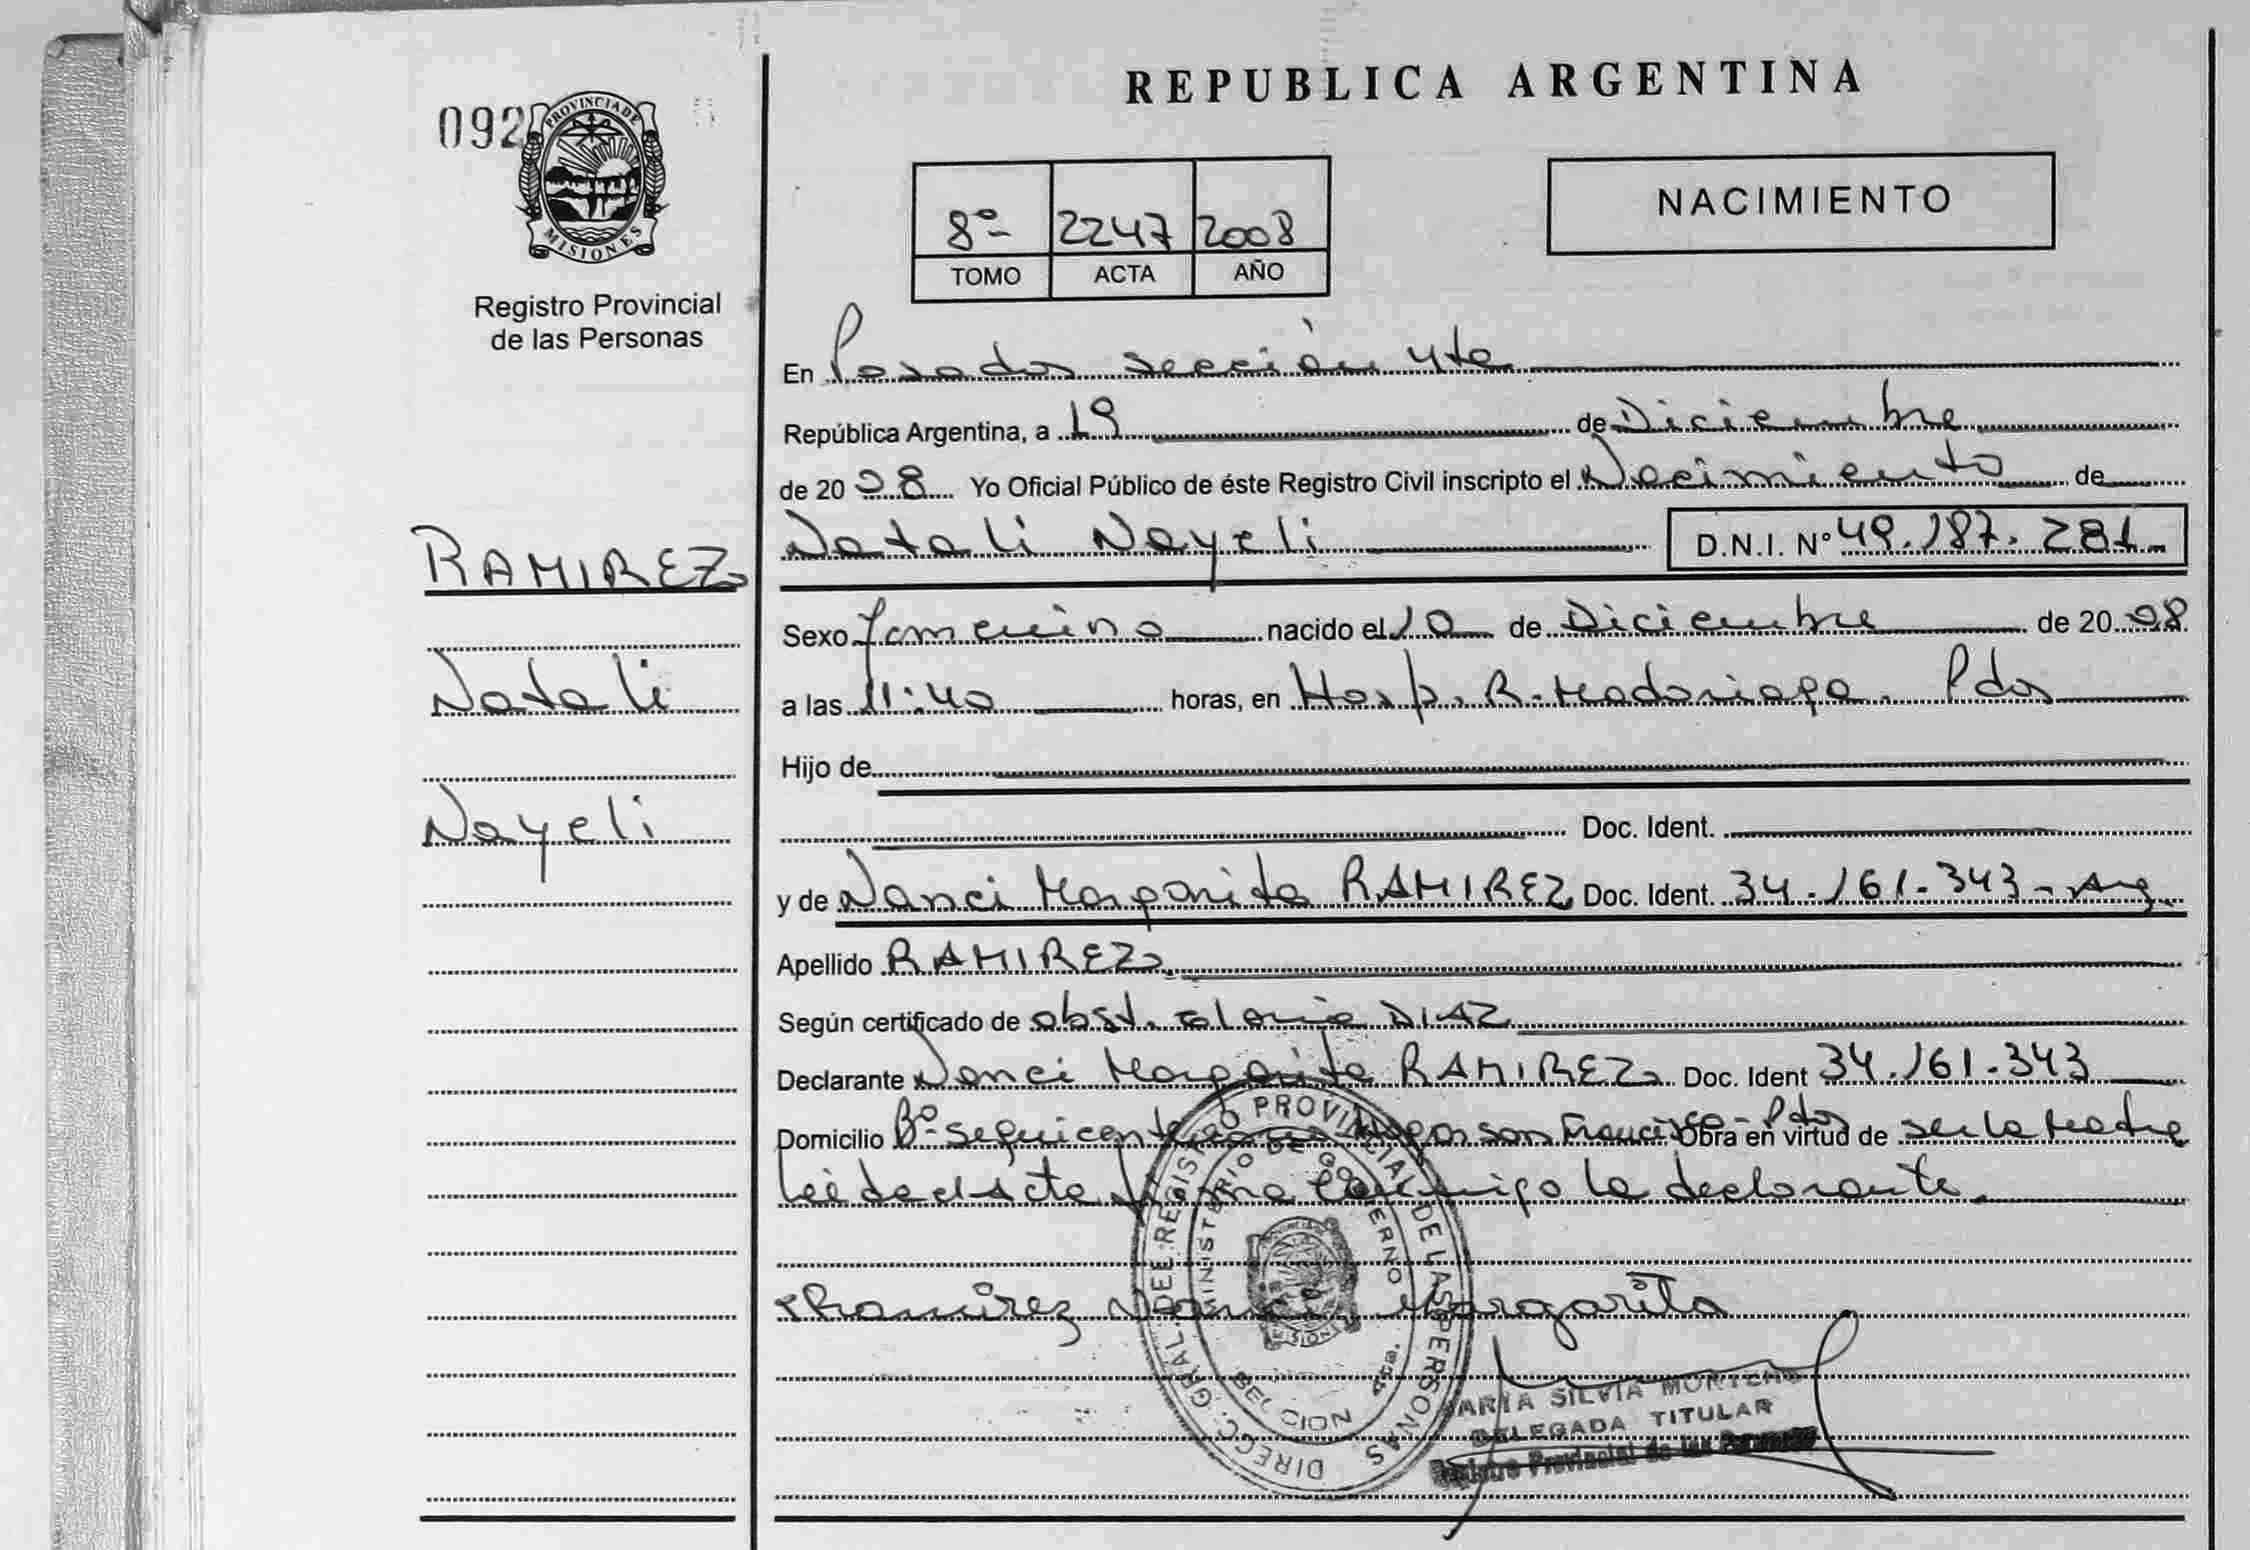 REPUBLICA ARGENTINA
092
PROVINCIA DE
MISIONES
Registro Provincial
de las Personas
8º 2247 2008
TOMO ACTA AÑO
NACIMIENTO
En Posadas sección 4ta
República Argentina, a 19 de Diciembre
de 2008 Yo Oficial Público de éste Registro Civil inscripto el Nacimiento de
RAMIREZ
Natali
Nayeli
Natali Nayeli D.N.I. Nº 49.187.281
Sexo femenino nacido el 10 de Diciembre de 2008
a las 11:40 horas, en Hosp. R. Madariaga. Pdas
Hijo de
Doc. Ident.
y de Nanci Margarita RAMIREZ Doc. Ident. 34.161.343 - Arg.
Apellido RAMIREZ
Según certificado de obst. Gloria DIAZ
Declarante Nanci Margarita RAMIREZ Doc. Ident 34.161.343
Domicilio Bº San Francisco - Pdas Obra en virtud de ser la Madre
Leída el Acta firma conmigo la declarante.
Ramirez Nanci Margarita
DIRECC. GRAL. DEL REGISTRO PROVINCIAL DE LAS PERSONAS
MINISTERIO DE GOBIERNO
MISIONES
4ta.
SILVIA
DELEGADA TITULAR
Registro Provincial de las Personas